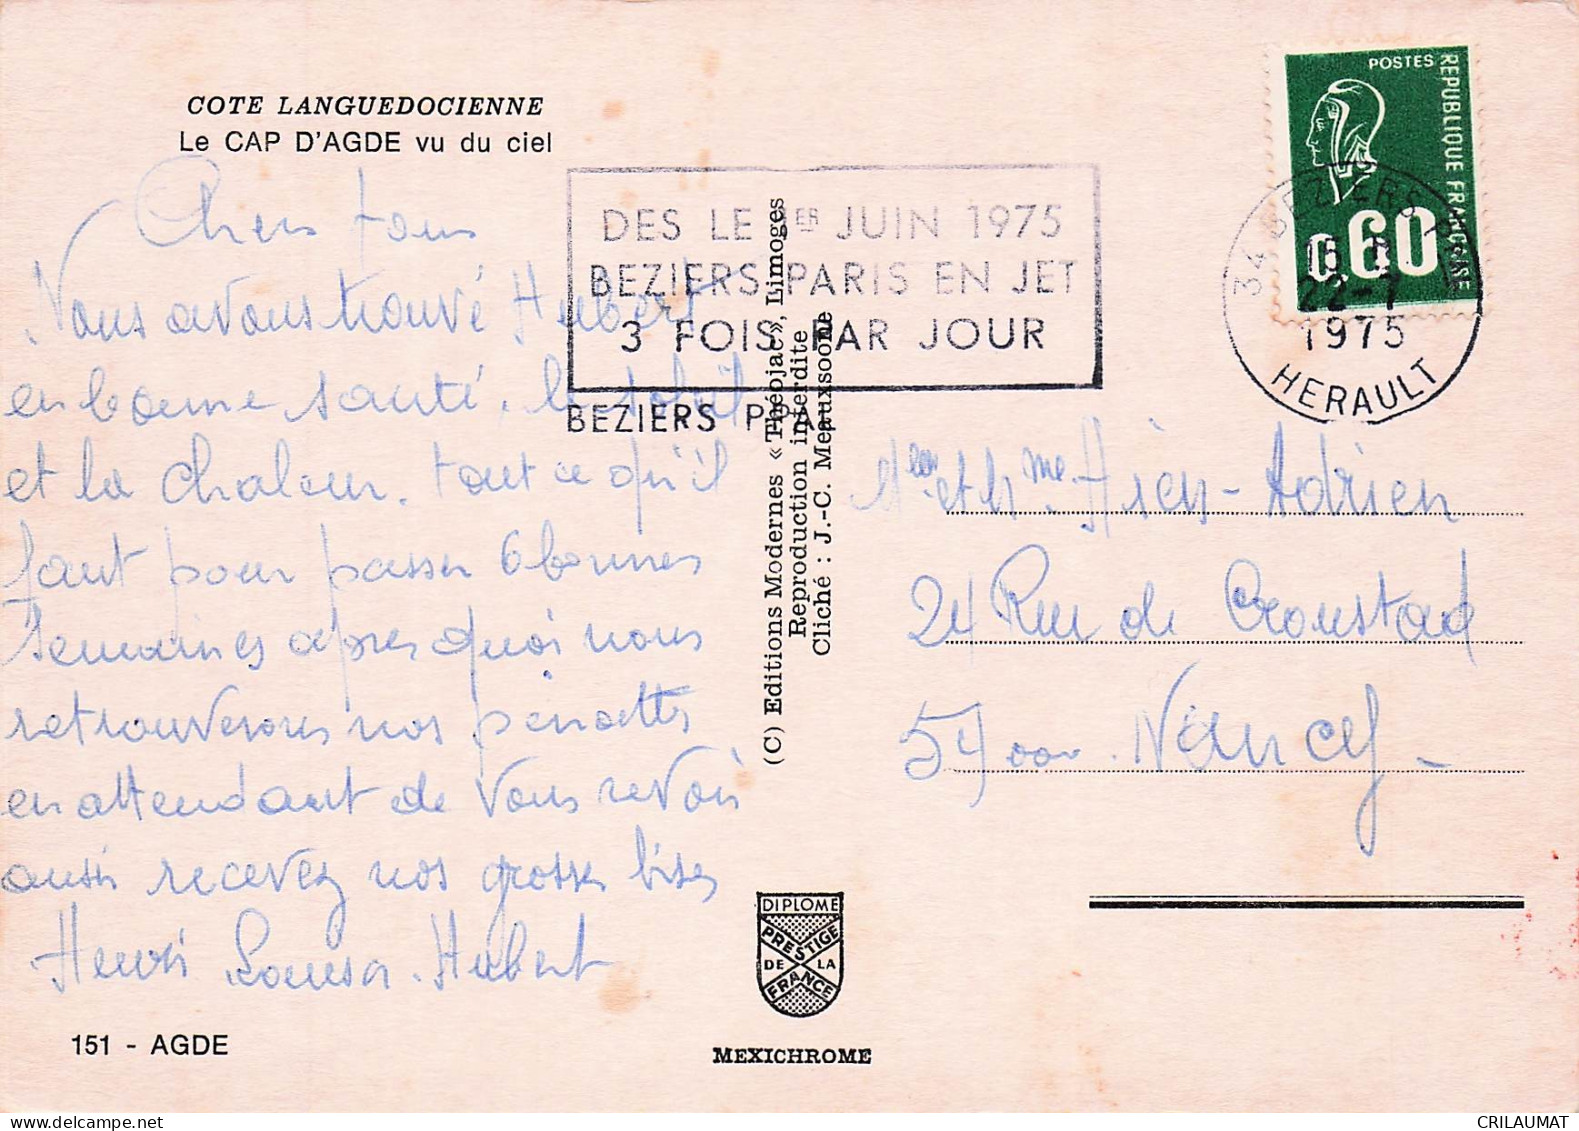 COTE LANGUEDOCIENNE
Le CAP D'AGDE vu du ciel
Chers tous
Nous avons trouvé Hubert
en bonne santé. le soleil
et la chaleur. tout ce qu'il
faut pour passer 6 bonnes
semaines après quoi nous
retrouverons nos pénates
en attendant de vous revoir
aussi recevez nos grosses bises
Henri Louisa. Hubert
151 - AGDE
DES LE 1ER JUIN 1975
BEZIERS PARIS EN JET
3 FOIS PAR JOUR
BEZIERS PPAL
(C) Editions Modernes « Théojac », Limoges
Reproduction interdite
Cliché : J.-C. Meauxsoone
DIPLOME
PRESTIGE
DE LA
FRANCE
MEXICHROME
POSTES
REPUBLIQUE FRANCAISE
0.60
34 BEZIERS
22-7
1975
HERAULT
et Mme. Adrien
24 Rue de Cronstad
54000. Nancy -
CRILAUMAT